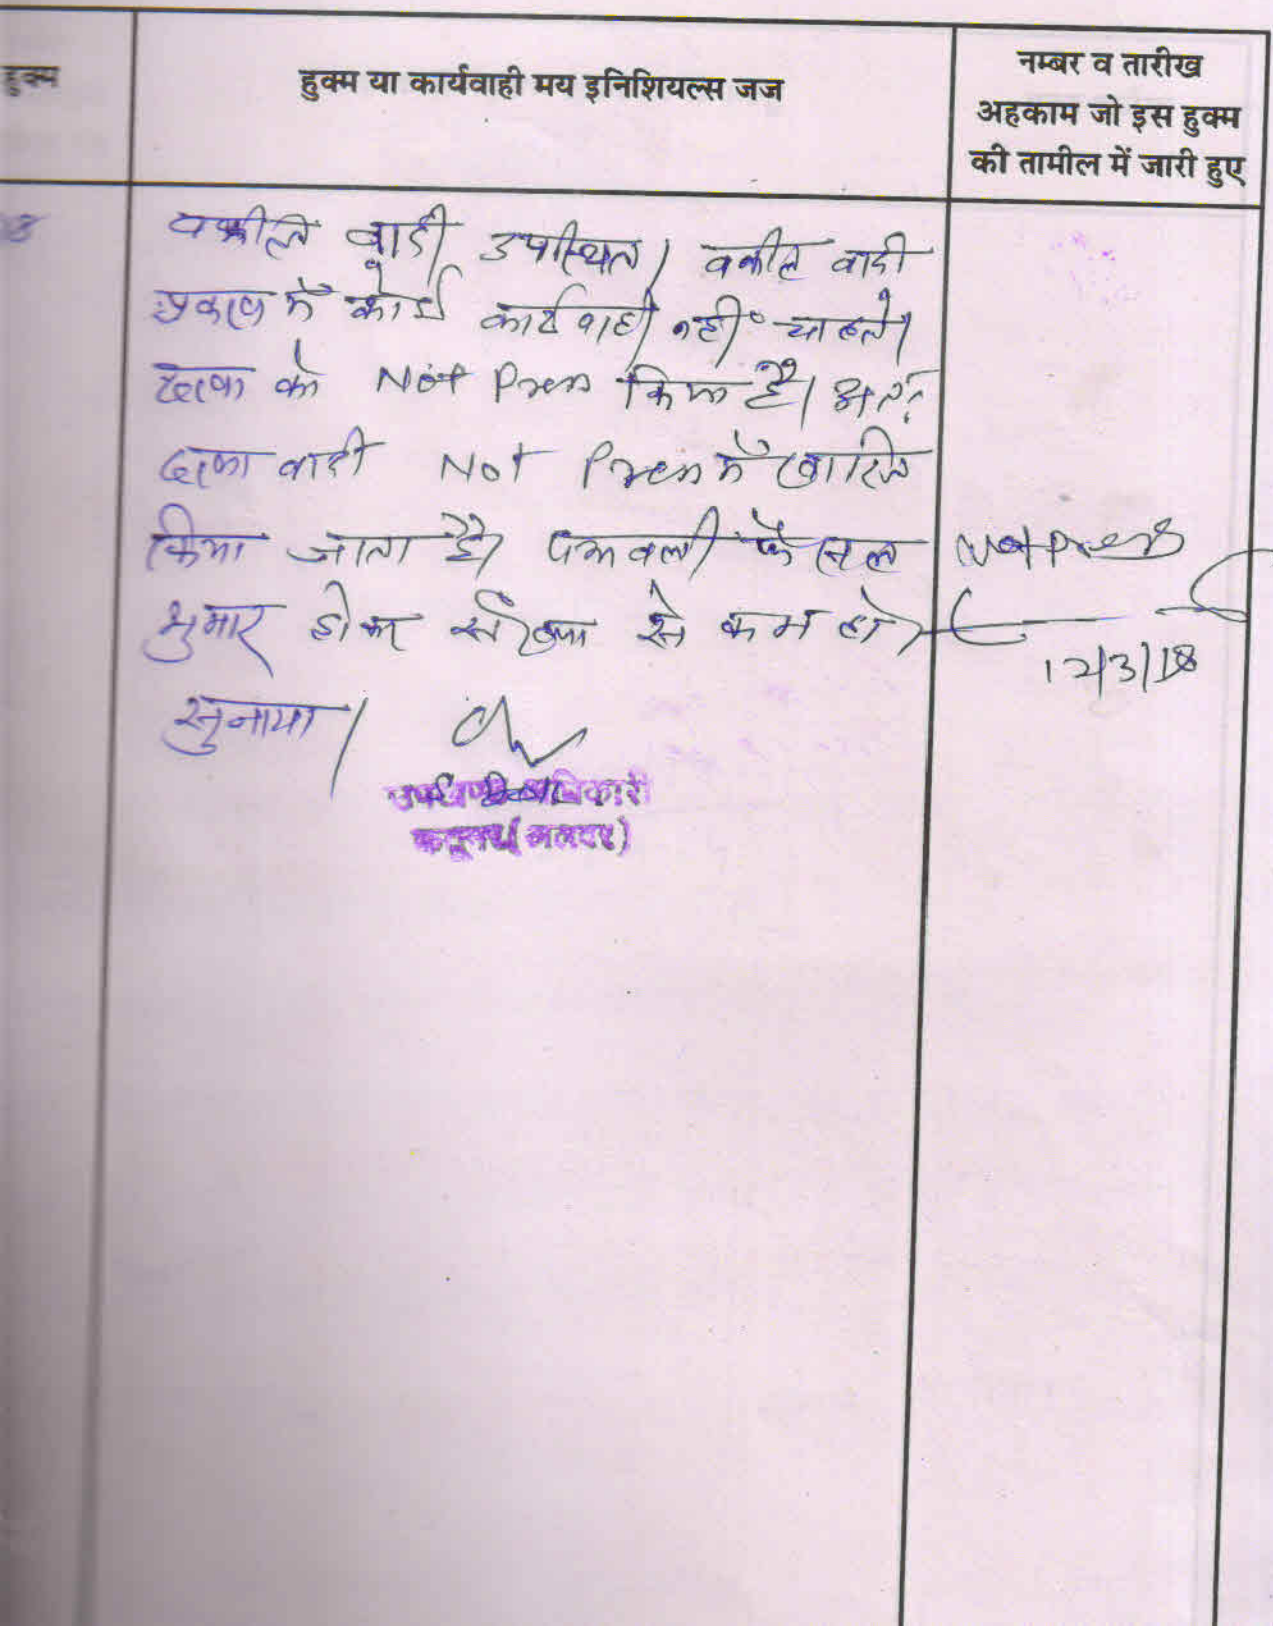 हुक्म
हुक्म या कार्यवाही मय इनिशियल्स जज
नम्बर व तारीख
अहकाम जो इस हुक्म
की तामील में जारी हुए
वकील वादी उपस्थित। वकील वादी
प्रकरण में कोई कार्यवाही नहीं चाहते।
को Not Press किया है। अतः
वादी Not Press में खारिज
किया जाता है। पत्रावली फैसल
शुमार होकर से कम हो।
सुनाया।
Not Press
12/3/18
उपखण्ड अधिकारी
कठूमर (अलवर)